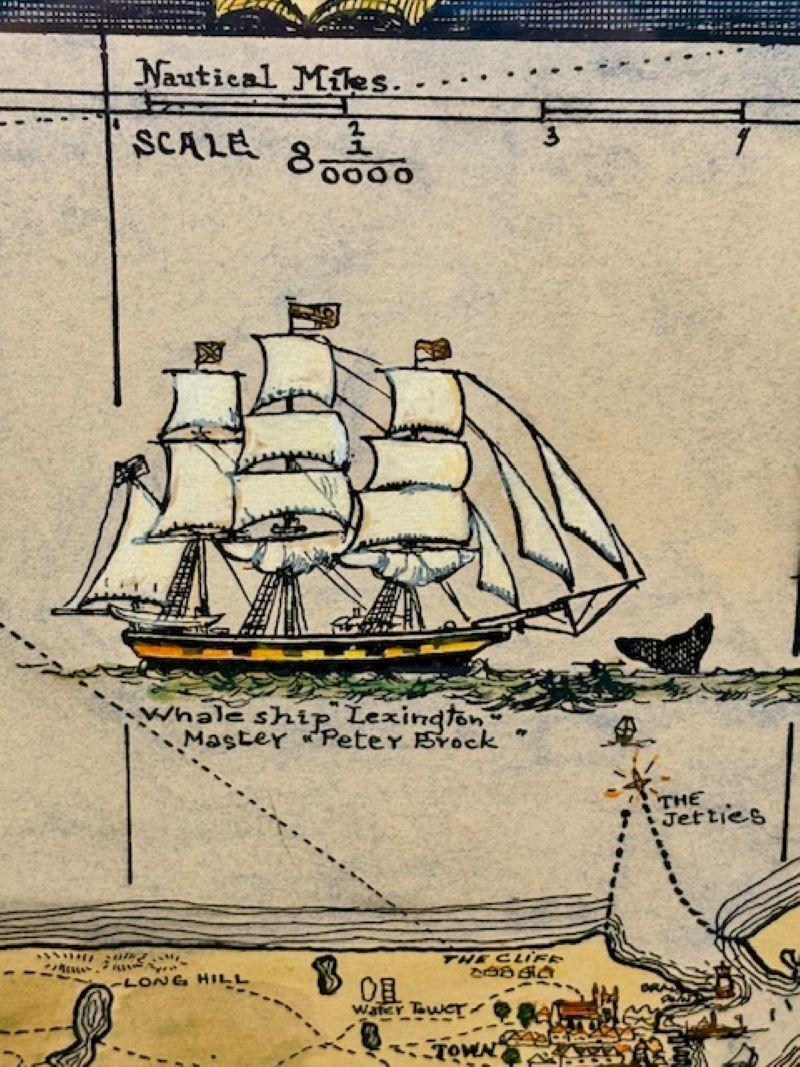 Nautical Miles.
2 3 4
SCALE 8 1/0000
Whale ship "Lexington"
Master "Peter Brock"
THE
Jetties
THE CLIFF
LONG HILL
Water Tower
TOWN